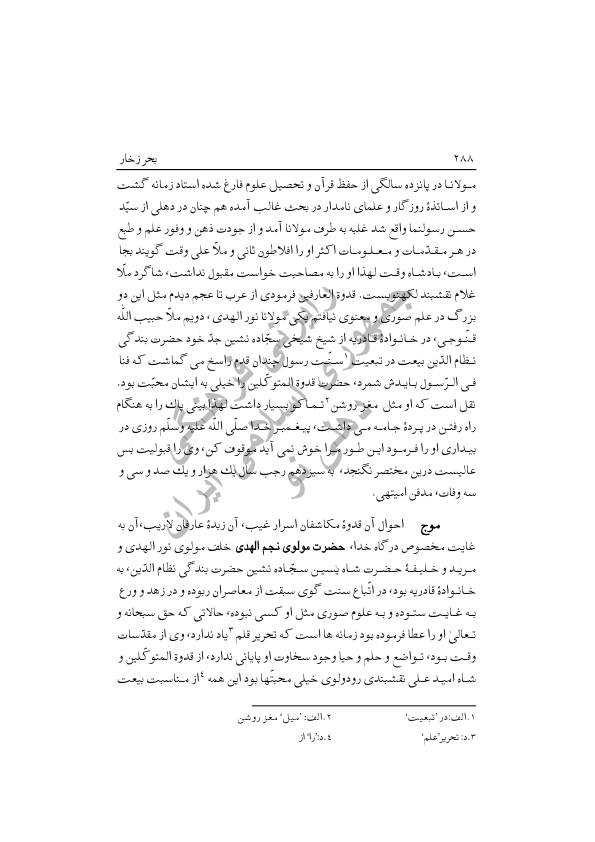 ۲۸۸ بحر زخار
مولانا در پانزده سالگی از حفظ قرآن و تحصیل علوم فارغ شده استاد زمانه گشت
و از اساتذهٔ روزگار و علمای نامدار در بحث غالب آمده هم چنان در دهلی از سیّد
حسن رسولنما واقع شد غلبه به طرف مولانا آمد و از جودت ذهن و وفور علم و طبع
در هر مقدّمات و معلومات اکثر او را افلاطون ثانی و ملّا علی وقت گویند بجا
است، پادشاه وقت لهذا او را به مصاحبت خواست مقبول نداشت، شاگرد ملّا
غلام نقشبند لکهنویست. قدوة العارفین فرمودی از عرب تا عجم دیدم مثل این دو
بزرگ در علم صوری و معنوی نیافتم یکی مولانا نور الهدی، دویم ملّا حبیب الله
قنّوجی، در خانوادهٔ قادریه از شیخ شیخی سجّاده نشین جدّ خود حضرت بندگی
نظام الدّین بیعت در تبعیت ۱ سنّیت رسول چندان قدم راسخ می گماشت که فنا
فی الرّسول بایدش شمرد، حضرت قدوة المتوکّلین را خیلی به ایشان محبّت بود.
نقل است که او مثل مغز روشن۲ تماکو بسیار داشت لهذا بینی پاك را به هنگام
راه رفتن در پردهٔ جامه می داشت، پیغمبر خدا صلّی الله علیه وسلّم روزی در
بیداری او را فرمود این طور مرا خوش نمی آید موقوف کن، وی را قبولیت بس
عالیست درین مختصر نگنجد، به سیزدهم رجب سال یك هزار و یك صد و سی و
سه وفات، مدفن امیتهی.
موج احوال آن قدوهٔ مکاشفان اسرار غیب، آن زبدهٔ عارفان لاریب، آن به
غایت مخصوص درگاه خدا، حضرت مولوی نجم الهدی خلف مولوی نور الهدی و
مرید و خلیفهٔ حضرت شاه یٰسین سجّاده نشین حضرت بندگی نظام الدّین، به
خانوادهٔ قادریه بود، در اتّباع سنت گوی سبقت از معاصران ربوده و در زهد و ورع
به غایت ستوده و به علوم صوری مثل او کسی نبوده، حالاتی که حق سبحانه و
تعالیٰ او را عطا فرموده بود زمانه ها است که تحریر قلم ۳ یاد ندارد، وی از مقدّسات
وقت بود، تواضع و حلم و حیا وجود سخاوت او پایانی ندارد، از قدوة المتوکّلین و
شاه امید علی نقشبندی رودولوی خیلی محبّتها بود این همه ۴ از مناسبت بیعت
۱. الف: در 'تبعیت' ۲. الف: 'میل' مغز روشن
۳. د: تحریر 'علم' ۴. د: 'را' از
رایزنی فرهنگی
جمهوری اسلامی ایران
دهلی نو